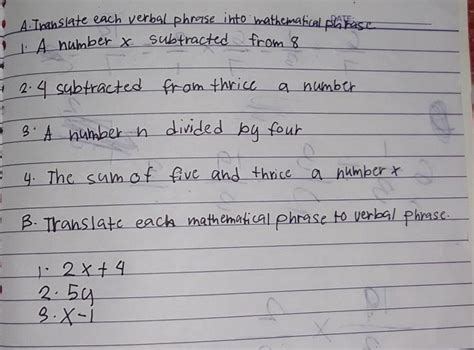 A. Translate each verbal phrase into mathematical phrase
1. A number x subtracted from 8
2. 4 subtracted from thrice a number
3. A number n divided by four
4. The sum of five and thrice a number x
B. Translate each mathematical phrase to verbal phrase.
1. 2x + 4
2. 5y
3. x - 1